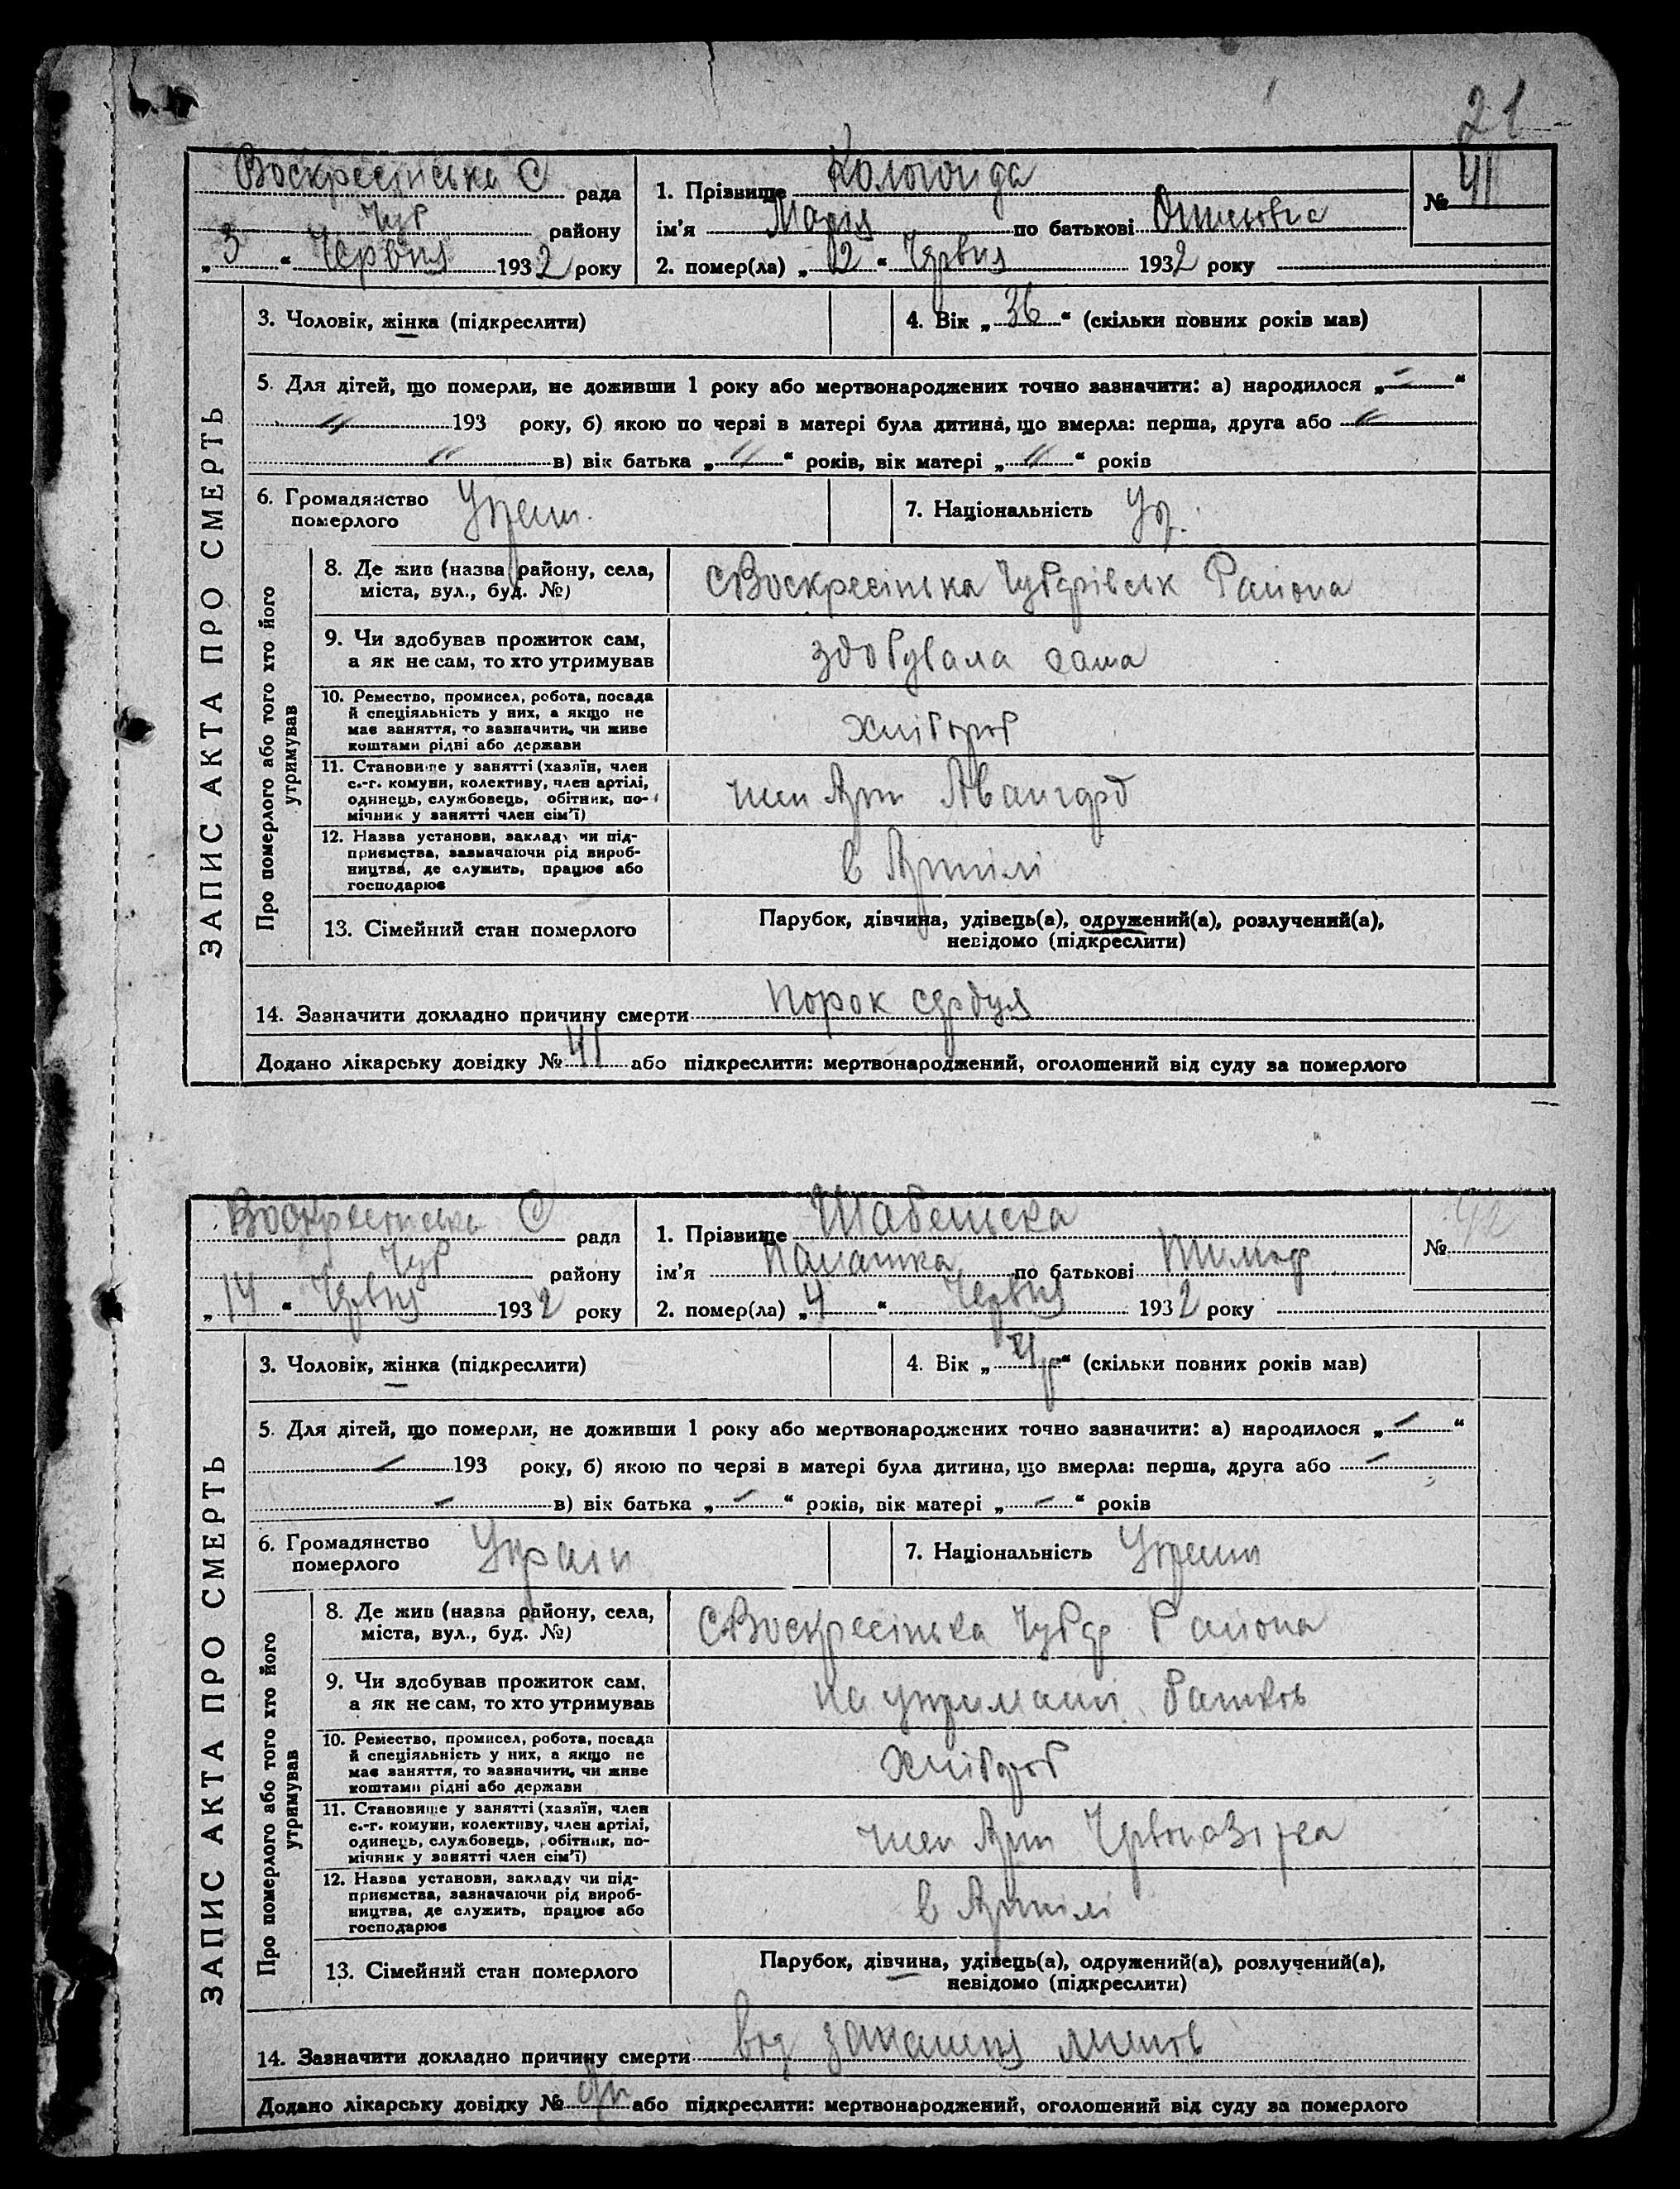 21
Воскресінська С рада
Чуб району
„3“ Червня 1932 року
1. Прізвище Кологоида
ім’я Марія по батькові
2. помер(ла) „12“ Червня 1932 року
№ 41
ЗАПИС АКТА ПРО СМЕРТЬ
3. Чоловік, жінка (підкреслити)
4. Вік „36“ (скільки повних років мав)
5. Для дітей, що померли, не доживши 1 року або мертвонароджених точно зазначити: а) народилося „–“
〃 193 року, б) якою по черзі в матері була дитина, що вмерла: перша, друга або 〃
〃 в) вік батька „〃“ років, вік матері „〃“ років
6. Громадянство
померлого
7. Національність Ук.
Про померлого або того хто його
утримував
8. Де жив (назва району, села,
міста, вул., буд. №)
С Воскресінька Чубарівськ Района
9. Чи здобував прожиток сам,
а як не сам, то хто утримував
здобувала сама
10. Ремество, промисел, робота, посада
й спеціяльність у них, а якщо не
має заняття, то зазначити, чи живе
коштами рідні або держави
Хлібороб
11. Становище у занятті (хазяїн, член
с.-г. комуни, колективу, член артілі,
одинець, службовець, обітник, по-
мічник у занятті член сім’ї)
член Арт Авангард
12. Назва установи, закладу чи під-
приємства, зазначаючи рід вироб-
ництва, де служить, працює або
господарює
в Артілі
13. Сімейний стан померлого
Парубок, дівчина, удівець(а), одружений(а), розлучений(а),
невідомо (підкреслити)
14. Зазначити докладно причину смерти порок сердця
Додано лікарську довідку № 41 або підкреслити: мертвонароджений, оголошений від суду за померлого
Воскресінська С рада
Чуб району
„14“ Червня 1932 року
1. Прізвище Шабельска
ім’я Палашка по батькові Тимоф
2. помер(ла) „4“ Червня 1932 року
№ 42
ЗАПИС АКТА ПРО СМЕРТЬ
3. Чоловік, жінка (підкреслити)
4. Вік „4 р“ (скільки повних років мав)
5. Для дітей, що померли, не доживши 1 року або мертвонароджених точно зазначити: а) народилося „–“
– 193 року, б) якою по черзі в матері була дитина, що вмерла: перша, друга або –
– в) вік батька „–“ років, вік матері „–“ років
6. Громадянство
померлого
Украін
7. Національність Украін
Про померлого або того хто його
утримував
8. Де жив (назва району, села,
міста, вул., буд. №)
С Воскресінька Чубар Района
9. Чи здобував прожиток сам,
а як не сам, то хто утримував
на утримані батьків
10. Ремество, промисел, робота, посада
й спеціяльність у них, а якщо не
має заняття, то зазначити, чи живе
коштами рідні або держави
Хлібороб
11. Становище у занятті (хазяїн, член
с.-г. комуни, колективу, член артілі,
одинець, службовець, обітник, по-
мічник у занятті член сім’ї)
член Арт Червона Зірка
12. Назва установи, закладу чи під-
приємства, зазначаючи рід вироб-
ництва, де служить, працює або
господарює
в Артілі
13. Сімейний стан померлого
Парубок, дівчина, удівець(а), одружений(а), розлучений(а),
невідомо (підкреслити)
14. Зазначити докладно причину смерти від запаленя
Додано лікарську довідку № або підкреслити: мертвонароджений, оголошений від суду за померлого